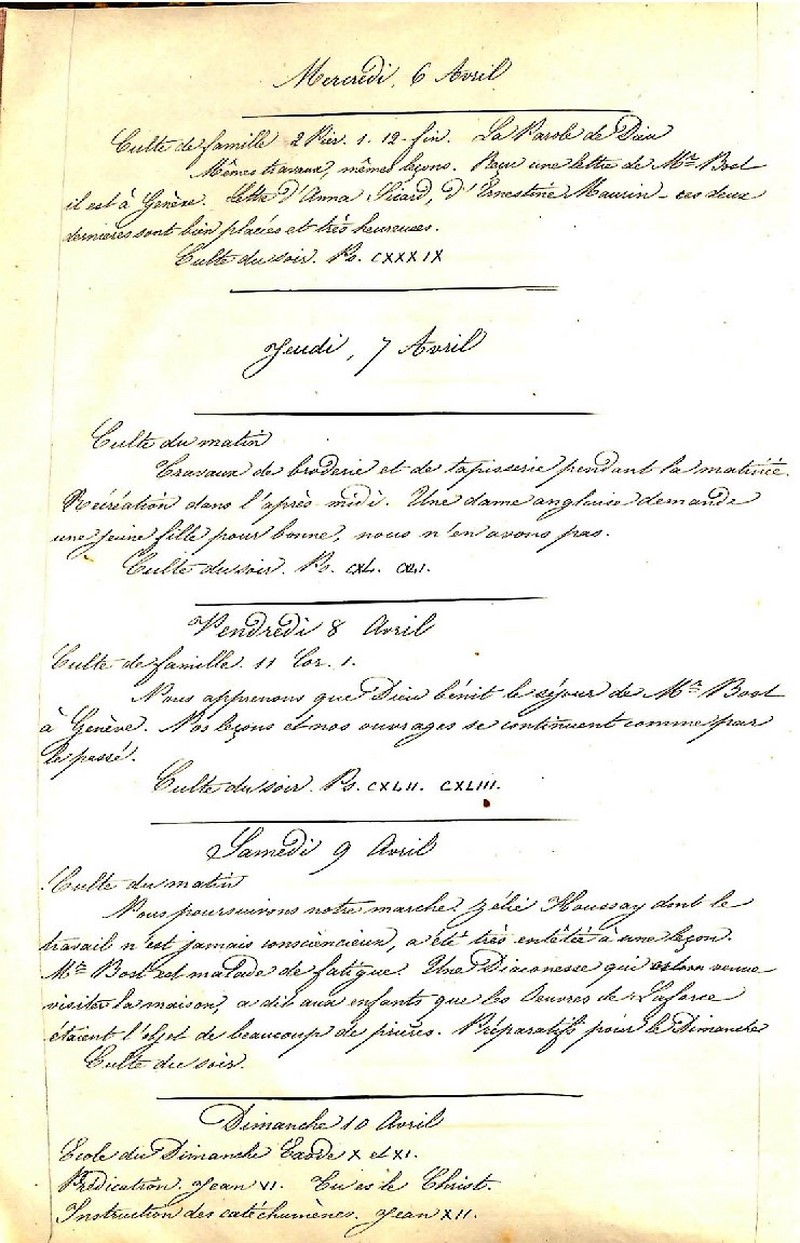 Mercredi, 6 Avril
Culte de famille 2 Pier. 1. 12-fin. La Parole de Dieu
Mêmes travaux, mêmes leçons. Reçu une lettre de Mr Bost
il est à Genève. Lettre d'Anna Sicard, d'Ernestine Maurin - ces deux
dernières sont bien placées et très heureuses.
Culte du soir. Ps. CXXXIX
Jeudi, 7 Avril
Culte du matin
Travaux de broderie et de tapisserie pendant la matinée.
Récréation dans l'après-midi. Une dame anglaise demande
une jeune fille pour bonne, nous n'en avons pas.
Culte du soir. Ps. CXL. CXLI.
Vendredi 8 Avril
Culte de famille. 11 Cor. 1.
Nous apprenons que Dieu bénit le séjour de Mr Bost
à Genève. Nos leçons et nos ouvrages se continuent comme par
le passé.
Culte du soir. Ps. CXLII. CXLIII.
Samedi 9 Avril
Culte du matin
Nous poursuivons notre marche. Zélie Houssay dont le
travail n'est jamais consciencieux, a été très entêtée à une leçon.
Mr Bost est malade de fatigue. Une Diaconesse qui venue
visiter la maison, a dit aux enfants que les Oeuvres de Laforce
étaient l'objet de beaucoup de prières. Préparatifs pour le Dimanche
Culte du soir.
Dimanche 10 Avril
Ecole du Dimanche Exode X et XI.
Prédication. Jean VI. Tu es le Christ.
Instruction des catéchumènes. Jean XII.